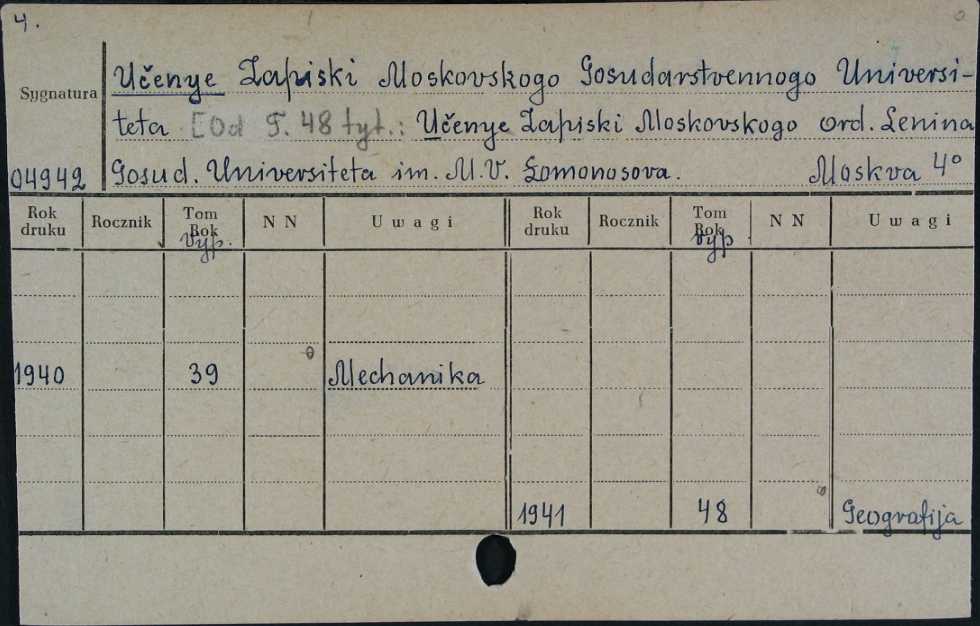 4.
Učenye Zapiski Moskovskogo Gosudarstvennogo Universi-
Sygnatura
teta [Od T. 48 tyt.: Učenye Zapiski Moskovskogo ord. Lenina
04942 Gosud. Universiteta im. M.V. Łomonosova. Moskva 4°
Rok druku Rocznik Tom Rok vyp. N N Uwagi Rok druku Rocznik Tom Rok vyp N N Uwagi
1940 39 Mechanika
1941 48 Geografija